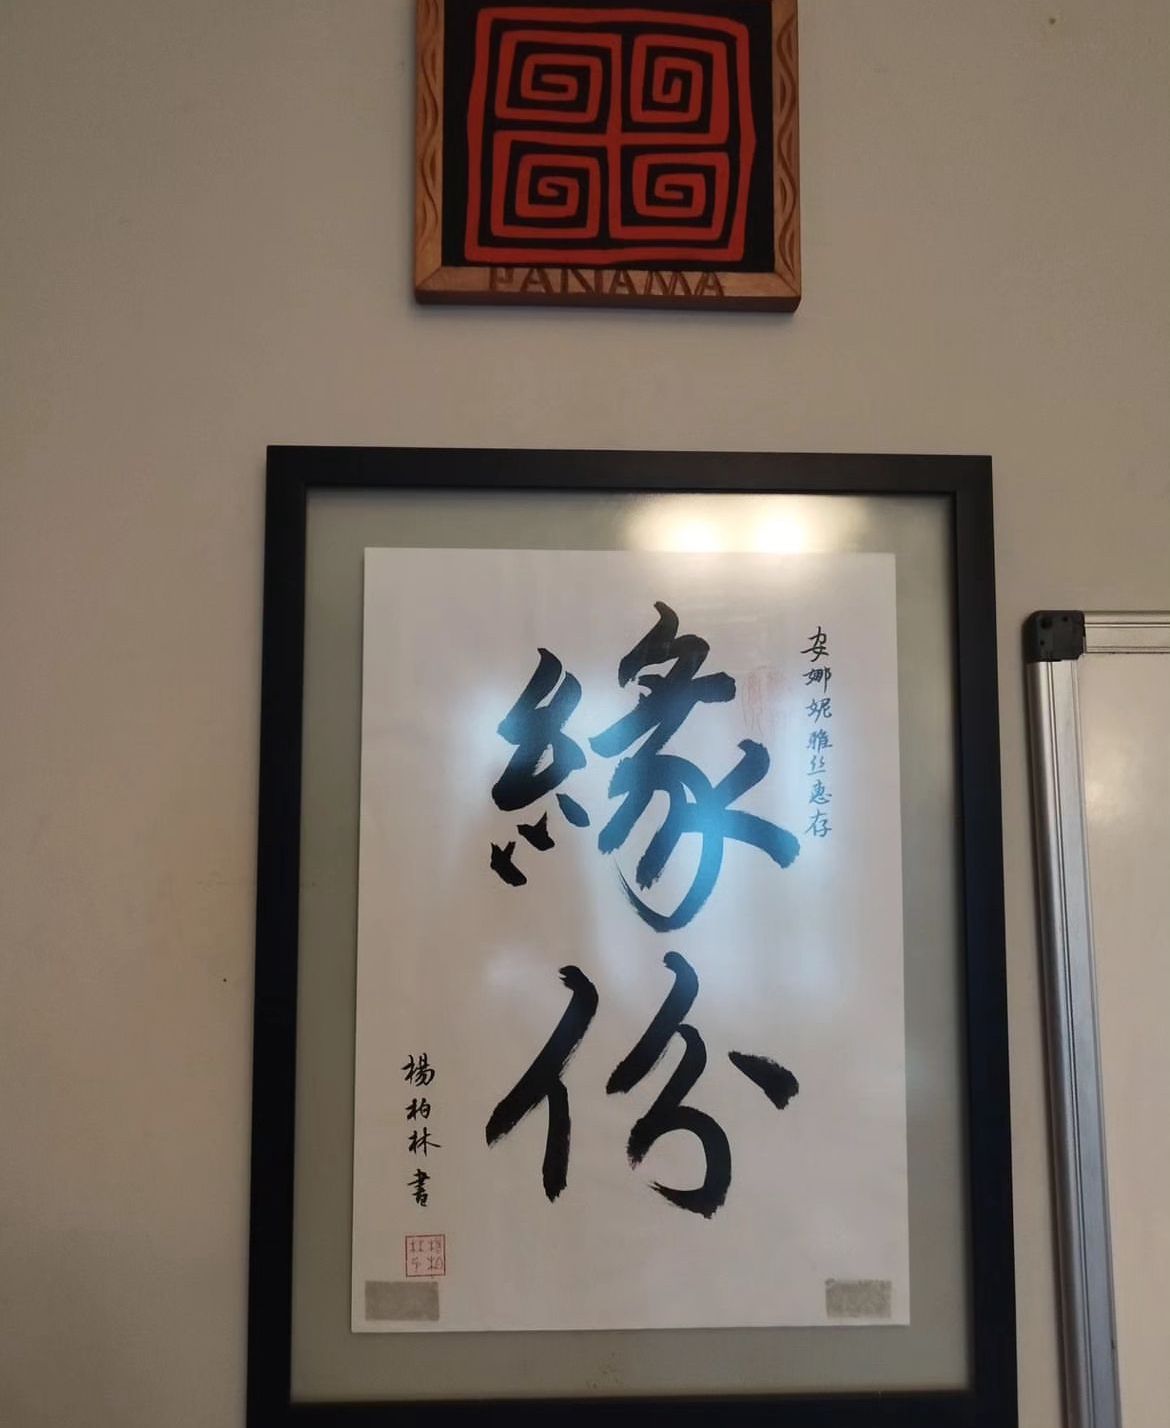 PANAMA
安娜妮雅丝惠存
緣份
楊柏林書